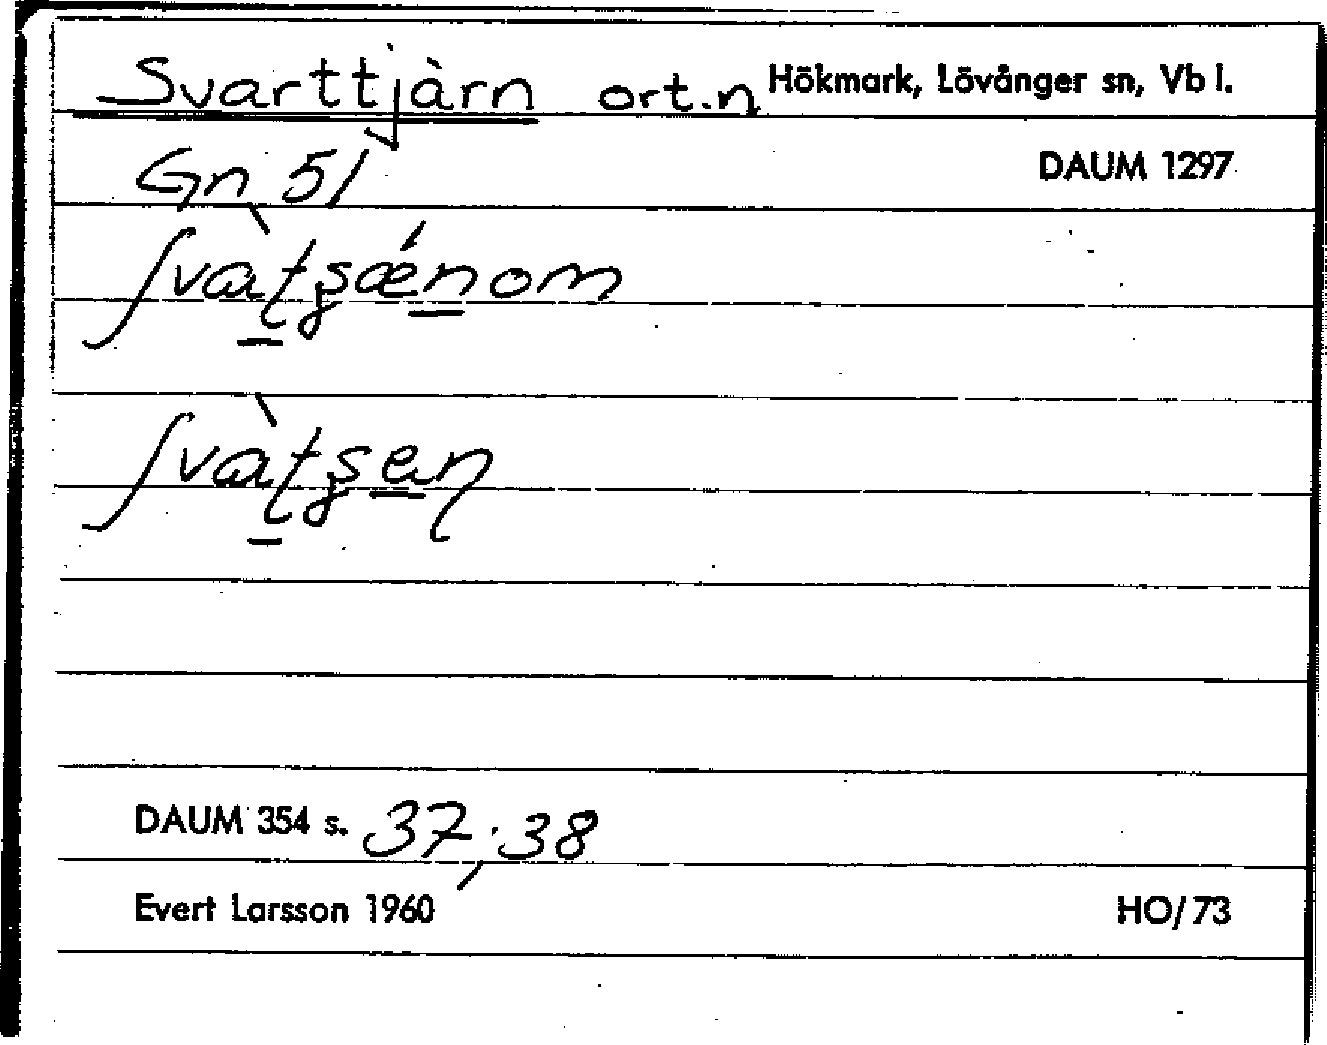 Svarttjärn ort.n Hökmark, Lövånger sn, Vb l.
Gn 51 DAUM 1297
ʃvàʈʂǽnom
ʃvàʈʂeɳ
DAUM 354 s. 37, 38
Evert Larsson 1960 HO/73